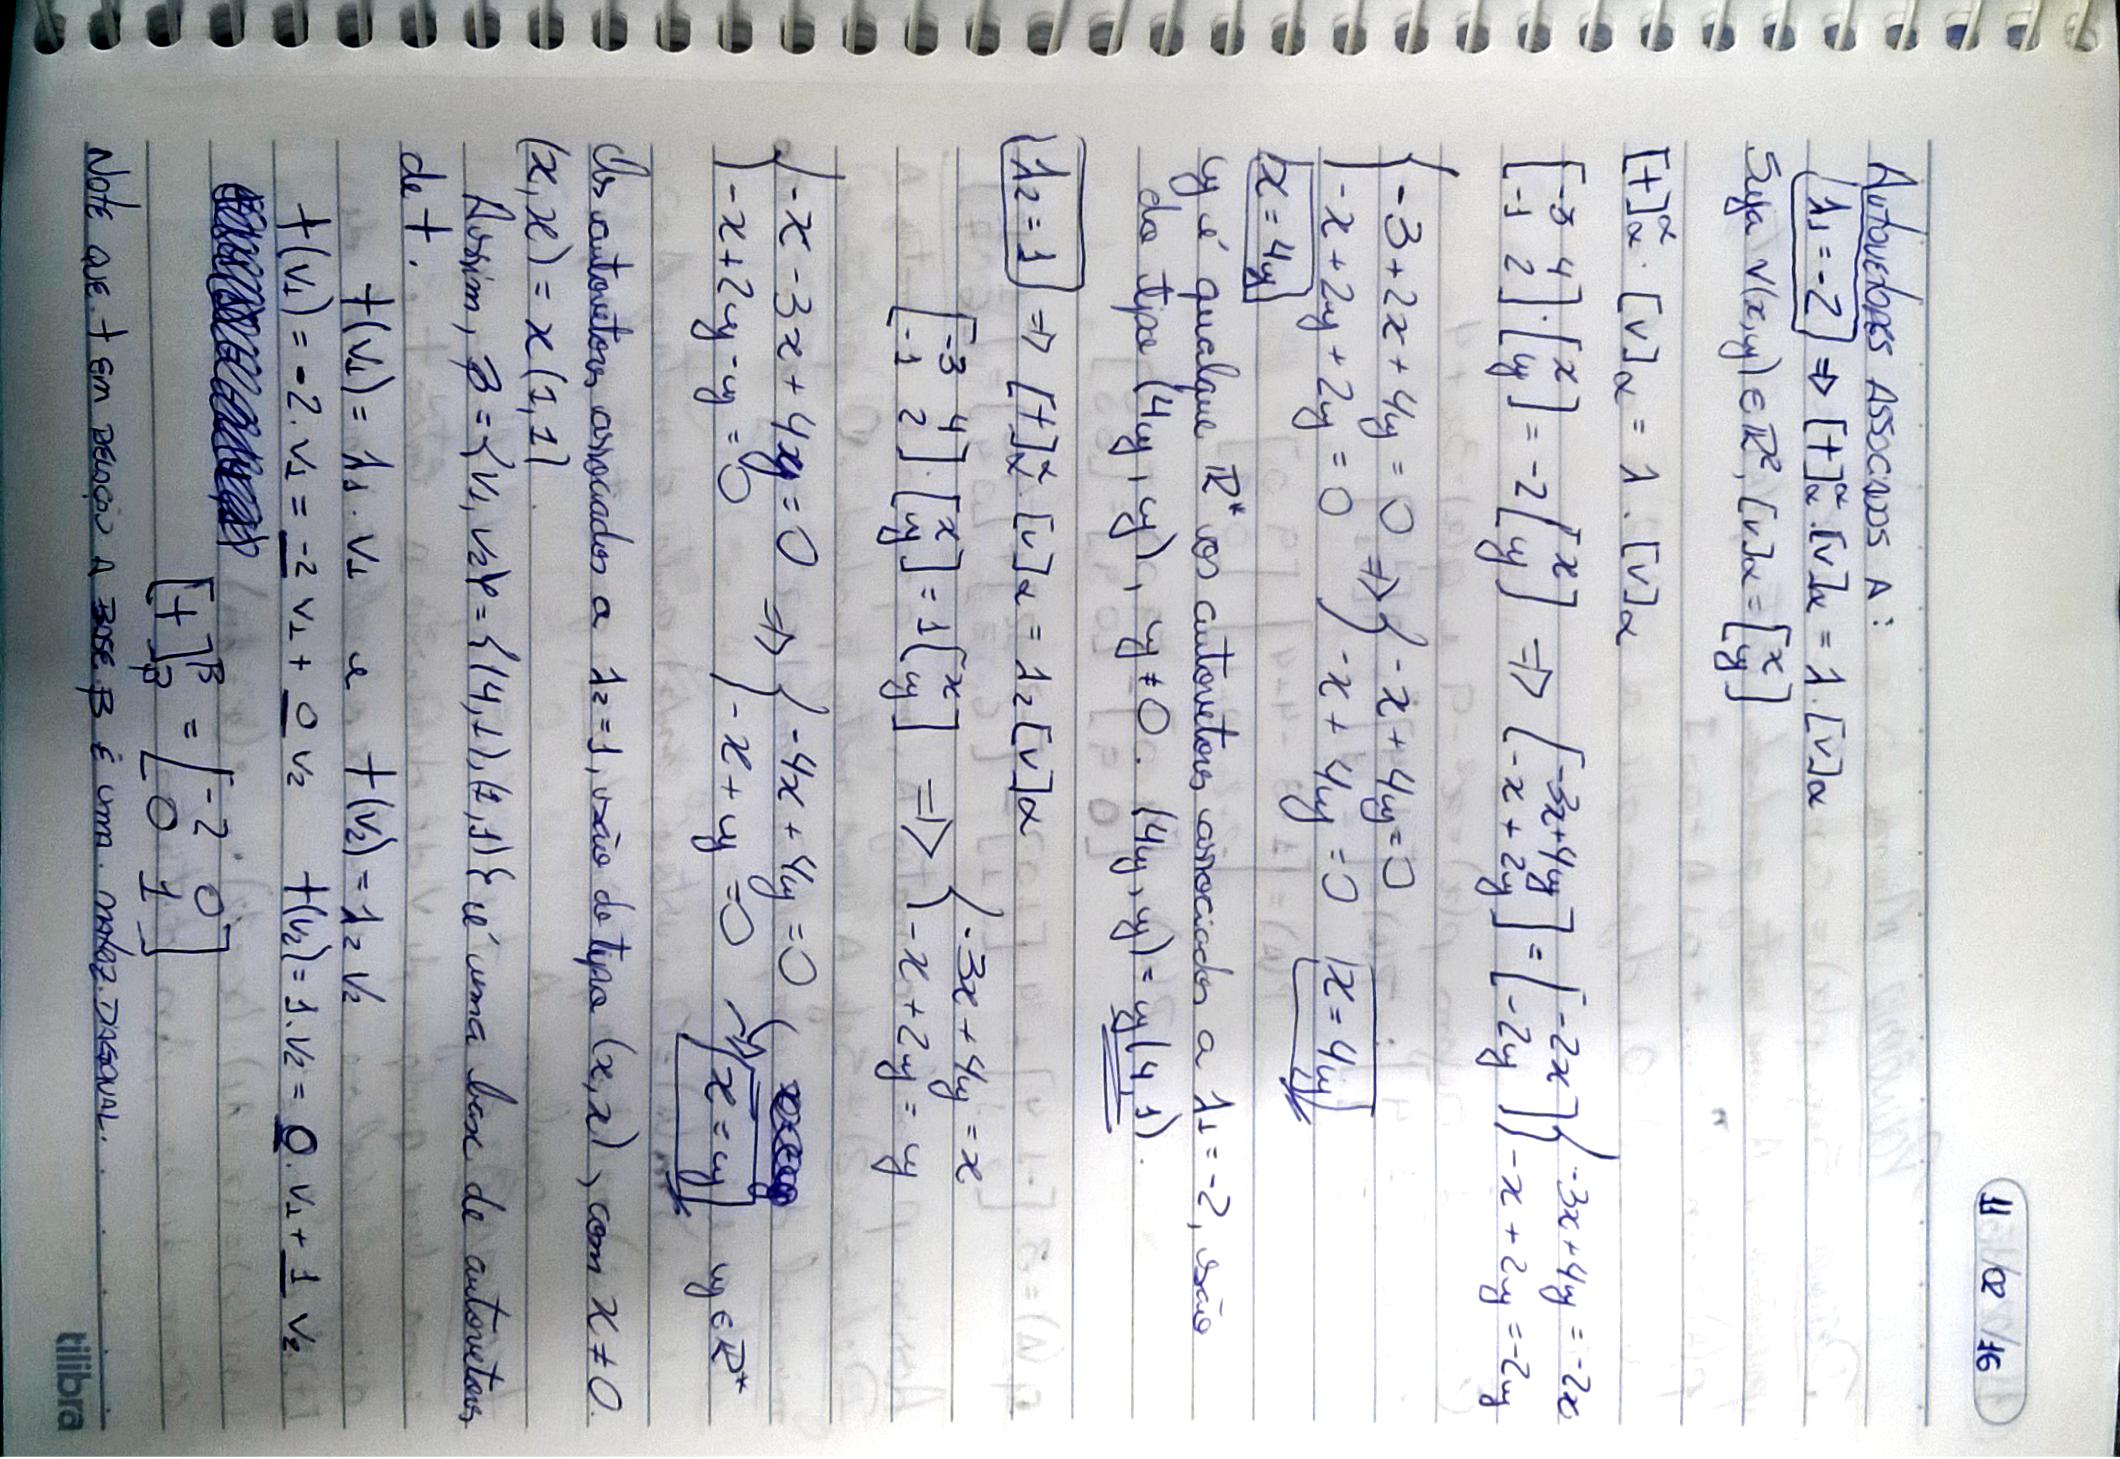 11 / 02 / 16
AUTOVETORES ASSOCIADOS A:
λ1 = -2 ⇒ [T]α^α · [v]α = λ · [v]α
Seja v(x,y) ∈ R², [v]α = [x; y]
[T]α^α · [v]α = λ . [v]α
[-3 4; -1 2] · [x; y] = -2 [x; y] ⇒ [-3x+4y; -x+2y] = [-2x; -2y] { -3x+4y = -2x; -x+2y = -2y
{ -3+2x+4y = 0; -x+2y+2y = 0 ⇒ { -x+4y=0; -x+4y=0 x=4y
x=4y
y é qualque R* os autovetores associados a λ1=-2, são
do tipo (4y, y), y≠0. (4y, y) = y(4,1).
λ2 = 1 ⇒ [T]α^α · [v]α = λ2 [v]α
[-3 4; -1 2] · [x; y] = 1 [x; y] ⇒ { -3x+4y = x; -x+2y = y
{ -x-3x+4y=0; -x+2y-y=0 ⇒ { -4x+4y=0; -x+y=0 → x=y y∈R*
Os autovetores associados a λ2=1, são do tipo (x,x), com x≠0.
(x,x) = x(1,1).
Assim, β = {v1, v2} = {(4,1),(1,1)} é uma base de autovetores
de T.
T(v1) = λ1 . v1 e T(v2) = λ2 v2
T(v1) = -2. v1 = -2 v1 + 0 v2 T(v2) = 1. v2 = 0. v1 + 1 v2
[T]β^β = [-2 0; 0 1]
NOTE QUE T EM RELAÇÃO A BASE β É UMA MATRIZ DIAGONAL.
tilibra